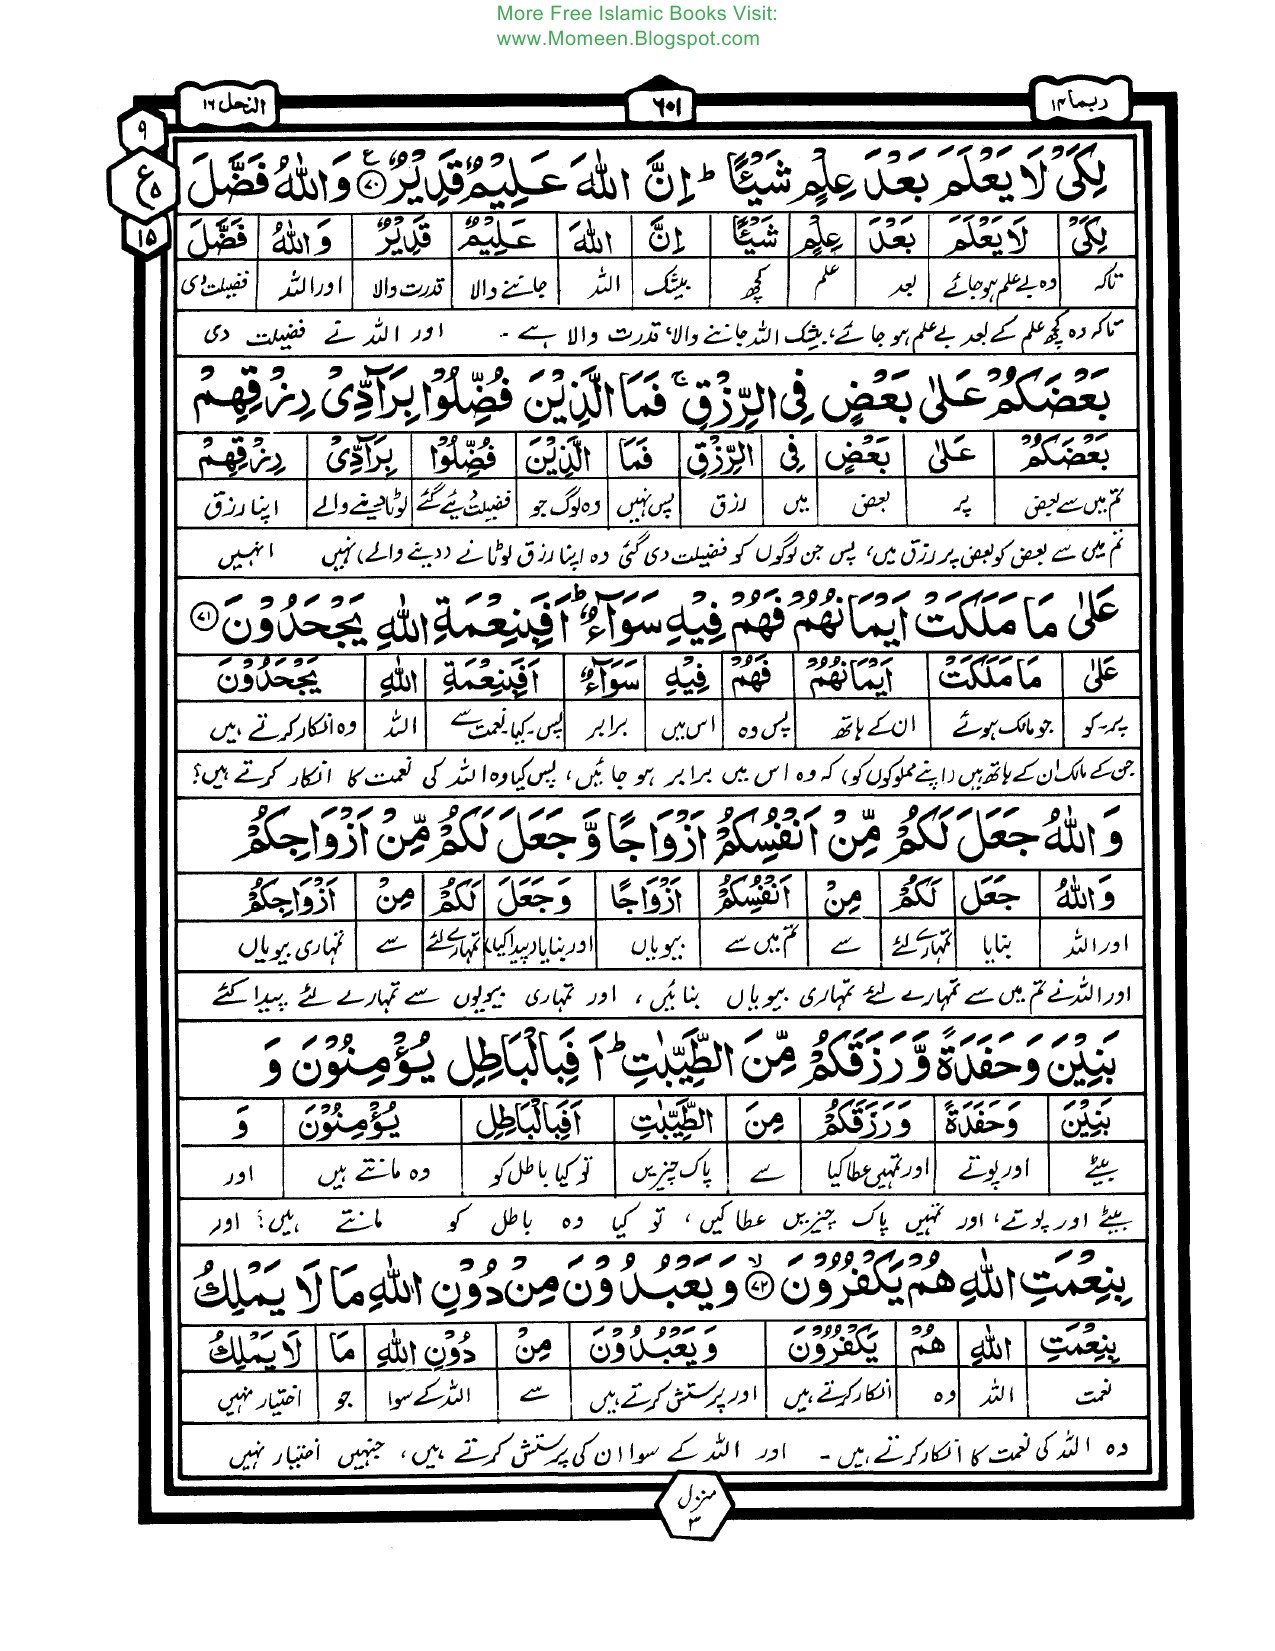 More Free Islamic Books Visit:
www.Momeen.Blogspot.com
ربما ۱۴
۶۰۱
النحل ۱۶
۹
ع ۵
۱۵
لِكَىْ لَا يَعْلَمَ بَعْدَ عِلْمٍ شَيْئًا ؕ اِنَّ اللّٰهَ عَلِيْمٌ قَدِيْرٌ ۷۰ۧ وَاللّٰهُ فَضَّلَ
لِكَىْ لَا يَعْلَمَ بَعْدَ عِلْمٍ شَيْئًا اِنَّ اللّٰهَ عَلِيْمٌ قَدِيْرٌ وَاللّٰهُ فَضَّلَ
تاکہ وہ بے علم ہو جائے بعد علم کچھ بیشک اللہ جاننے والا قدرت والا اور اللہ فضیلت دی
تاکہ وہ کچھ علم کے بعد بے علم ہو جائے، بیشک اللہ جاننے والا، قدرت والا ہے ۔ اور اللہ نے فضیلت دی
بَعْضَكُمْ عَلٰى بَعْضٍ فِى الرِّزْقِ ۚ فَمَا الَّذِيْنَ فُضِّلُوْا بِرَآدِّىْ رِزْقِهِمْ
بَعْضَكُمْ عَلٰى بَعْضٍ فِى الرِّزْقِ فَمَا الَّذِيْنَ فُضِّلُوْا بِرَآدِّىْ رِزْقِهِمْ
تم میں سے بعض پر بعض میں رزق پس نہیں وہ لوگ جو فضیلت دیئے گئے لوٹا دینے والے اپنا رزق
تم میں سے بعض کو بعض پر رزق میں، پس جن لوگوں کو فضیلت دی گئی وہ اپنا رزق لوٹانے (دینے والے) نہیں انہیں
عَلٰى مَا مَلَكَتْ اَيْمَانُهُمْ فَهُمْ فِيْهِ سَوَآءٌ ؕ اَفَبِنِعْمَةِ اللّٰهِ يَجْحَدُوْنَ ۷۱
عَلٰى مَا مَلَكَتْ اَيْمَانُهُمْ فَهُمْ فِيْهِ سَوَآءٌ اَفَبِنِعْمَةِ اللّٰهِ يَجْحَدُوْنَ
پر۔کو جو مالک ہوئے ان کے ہاتھ پس وہ اس میں برابر پس۔کیا نعمت سے اللہ وہ انکار کرتے ہیں
جن کے مالک ان کے ہاتھ ہیں (اپنے مملوکوں کو) کہ وہ اس میں برابر ہو جائیں، پس کیا وہ اللہ کی نعمت کا انکار کرتے ہیں؟
وَاللّٰهُ جَعَلَ لَكُمْ مِّنْ اَنْفُسِكُمْ اَزْوَاجًا وَّجَعَلَ لَكُمْ مِّنْ اَزْوَاجِكُمْ
وَاللّٰهُ جَعَلَ لَكُمْ مِنْ اَنْفُسِكُمْ اَزْوَاجًا وَجَعَلَ لَكُمْ مِنْ اَزْوَاجِكُمْ
اور اللہ بنایا تمہارے لئے سے تم میں سے بیویاں اور بنایا (پیدا کیا) تمہارے لئے سے تمہاری بیویاں
اور اللہ نے تم میں سے تمہارے لئے تمہاری بیویاں بنائیں، اور تمہاری بیویوں سے تمہارے لئے پیدا کئے
بَنِيْنَ وَحَفَدَةً وَّرَزَقَكُمْ مِّنَ الطَّيِّبٰتِ ؕ اَفَبِالْبَاطِلِ يُؤْمِنُوْنَ وَ
بَنِيْنَ وَحَفَدَةً وَرَزَقَكُمْ مِنَ الطَّيِّبٰتِ اَفَبِالْبَاطِلِ يُؤْمِنُوْنَ وَ
بیٹے اور پوتے اور تمہیں عطا کیا سے پاک چیزیں تو کیا باطل کو وہ مانتے ہیں اور
بیٹے اور پوتے، اور تمہیں پاک چیزیں عطا کیں، تو کیا وہ باطل کو مانتے ہیں؟ اور
بِنِعْمَتِ اللّٰهِ هُمْ يَكْفُرُوْنَ ۷۲ۙ وَيَعْبُدُوْنَ مِنْ دُوْنِ اللّٰهِ مَا لَا يَمْلِكُ
بِنِعْمَتِ اللّٰهِ هُمْ يَكْفُرُوْنَ وَيَعْبُدُوْنَ مِنْ دُوْنِ اللّٰهِ مَا لَا يَمْلِكُ
نعمت اللہ وہ انکار کرتے ہیں اور پرستش کرتے ہیں سے اللہ کے سوا جو اختیار نہیں
وہ اللہ کی نعمت کا انکار کرتے ہیں ۔ اور اللہ کے سوا ان کی پرستش کرتے ہیں، جنہیں اختیار نہیں
منزل ۳